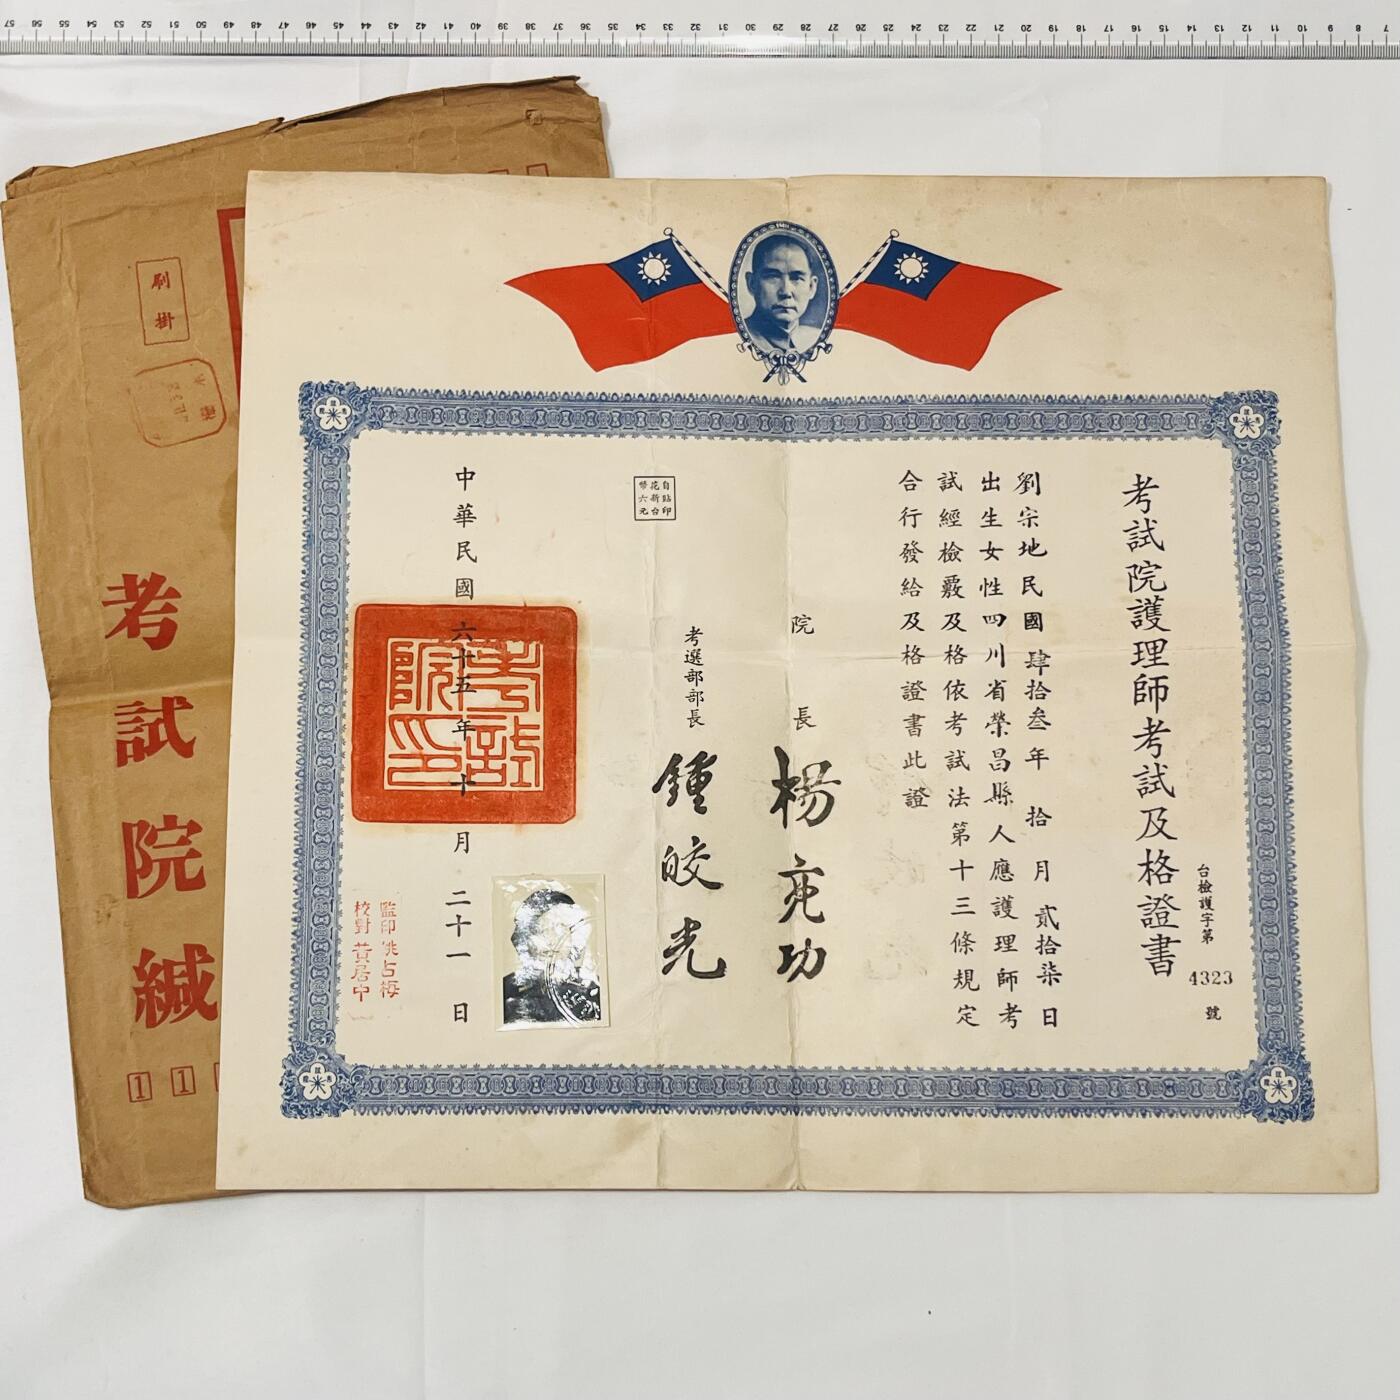 考試院護理師考試及格證書
台檢護字第4323號
劉宗地民國肆拾叁年拾月貳拾柒日
出生女性四川省榮昌縣人應護理師考
試經檢覈及格依考試法第十三條規定
合行發給及格證書此證
院長 楊亮功
考選部部長 鍾皎光
自貼印
花新台
幣六元
中華民國六十五年十月二十一日
考試院印
監印姚占梅
校對黃居中
刷掛
考試院緘
1 1
7 8 9 10 11 12 13 14 15 16 17 18 19 20 21 22 23 24 25 26 27 28 29 30 31 32 33 34 35 36 37 38 39 40 41 42 43 44 45 46 47 48 49 50 51 52 53 54 55 56 57